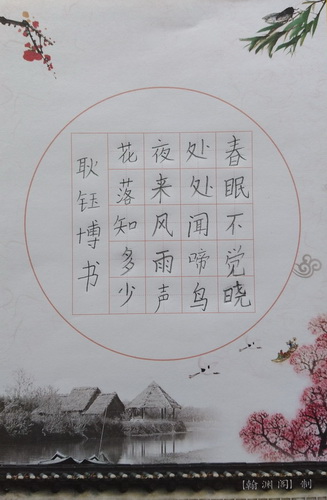 春眠不觉晓
处处闻啼鸟
夜来风雨声
花落知多少
耿钰博书
【翰渊阁】制